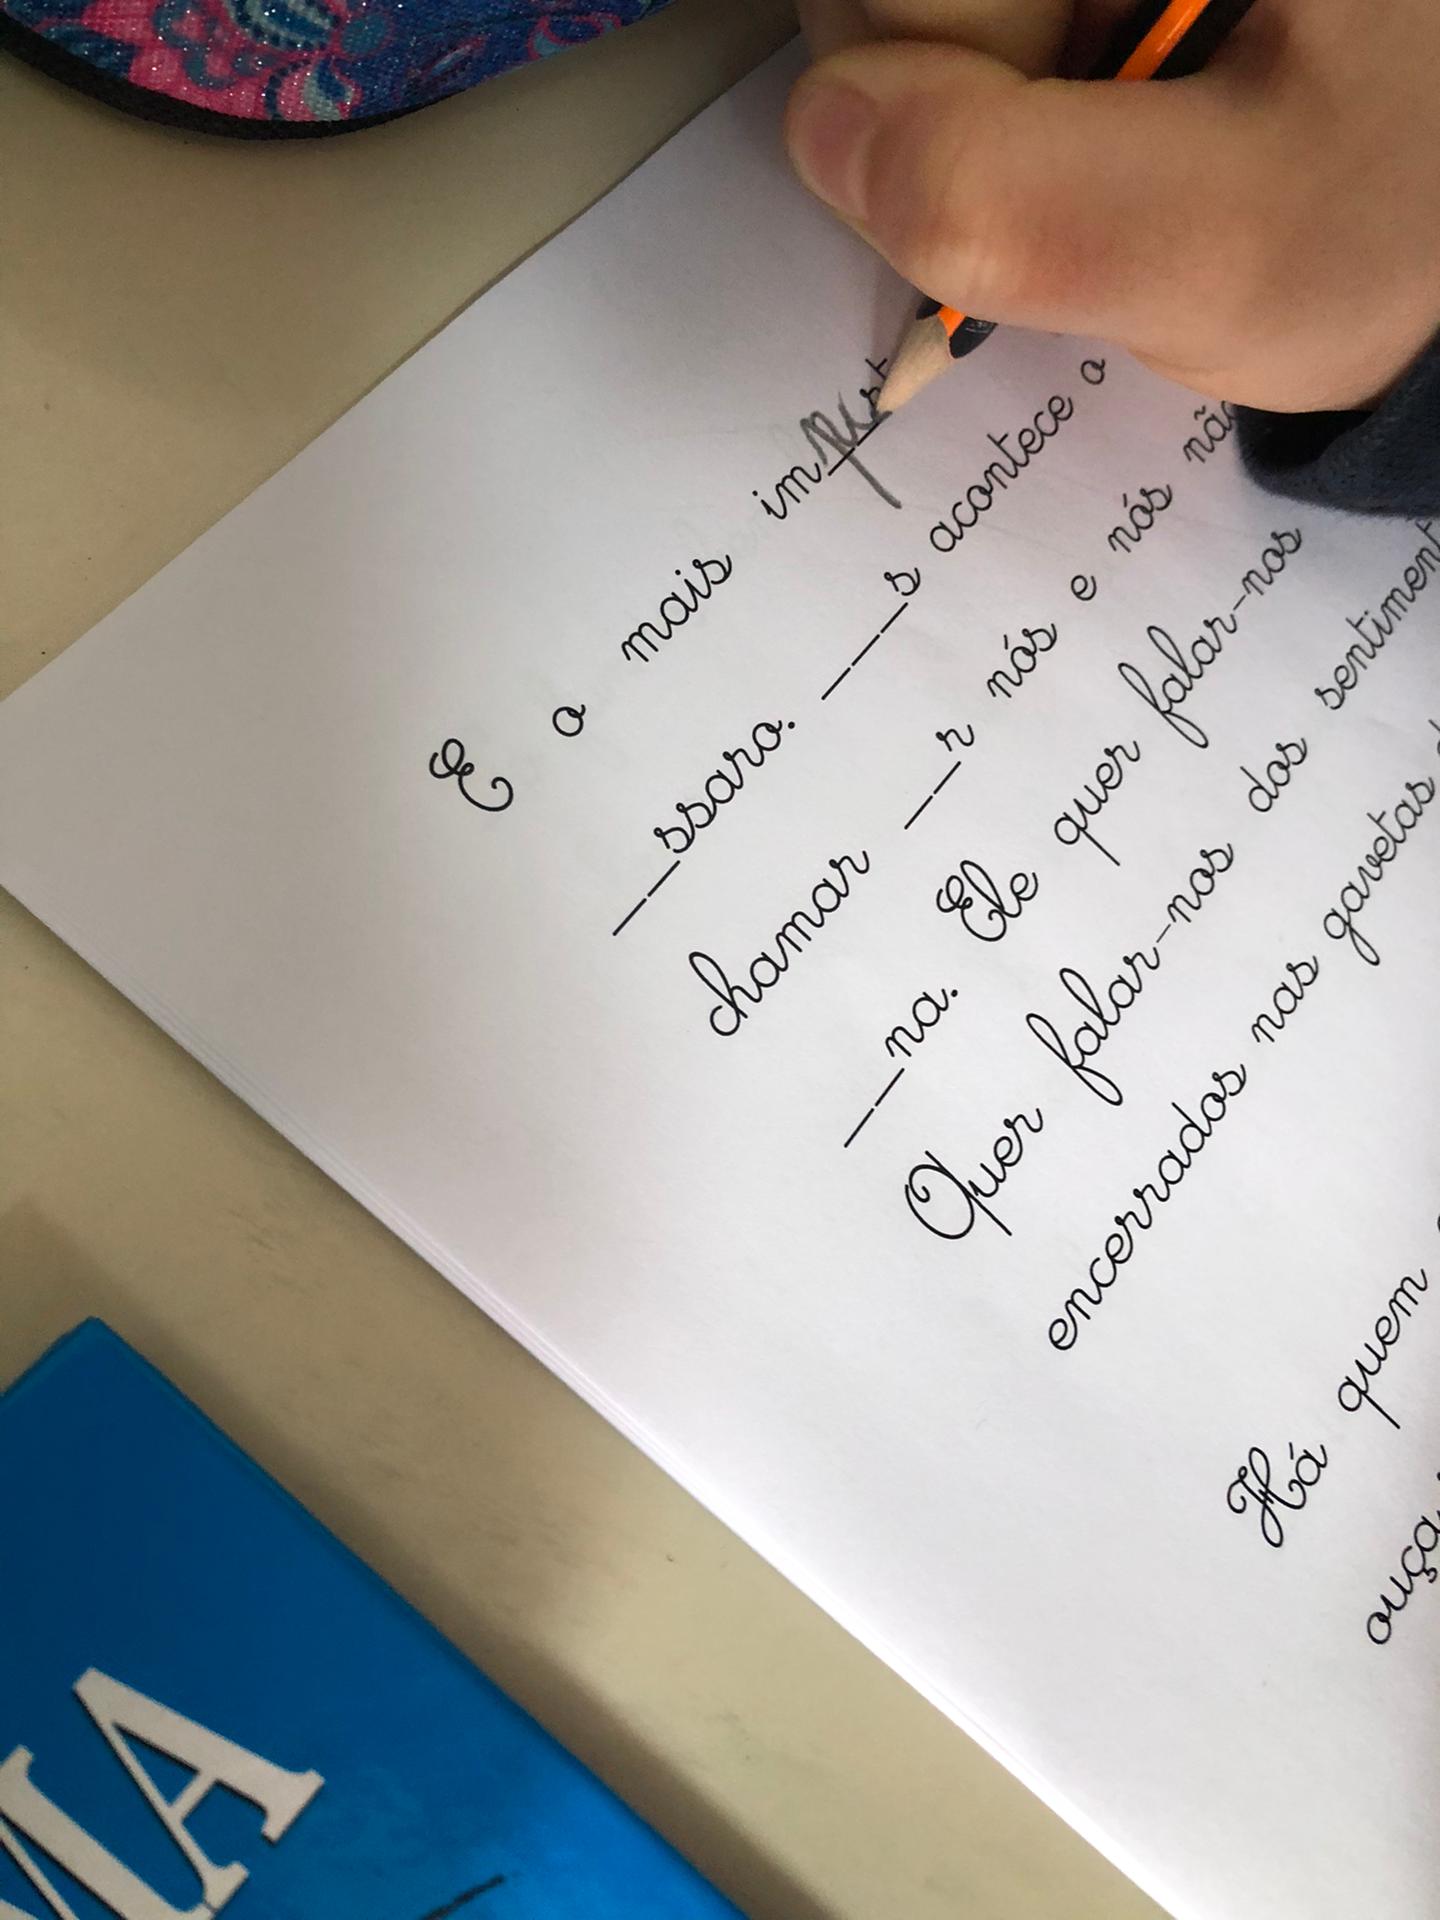 E o mais import
__ssaro. ___s acontece o
chamar __r nós e nós não
__na. Ele quer falar-nos
Quer falar-nos dos sentiment
encerrados nas gavetas d
Há quem
ouça
MA